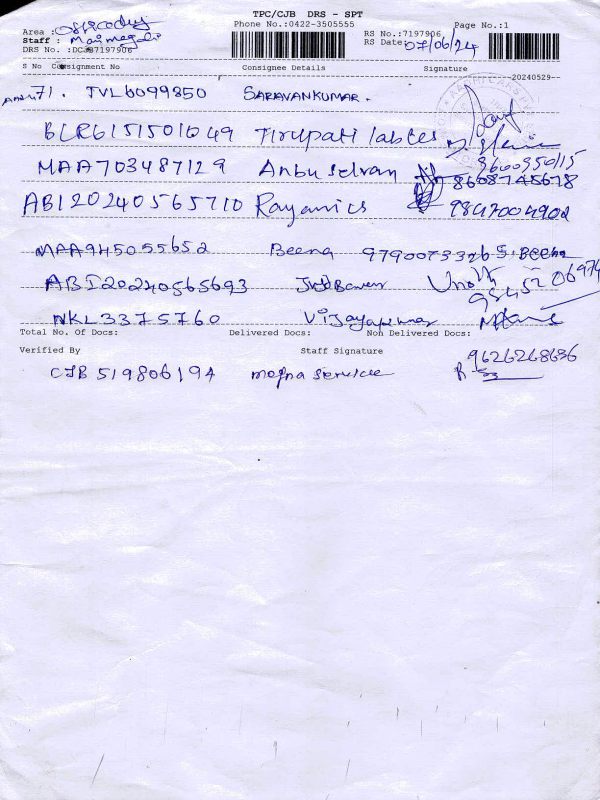 TPC/CJB DRS - SPT
Phone No.:0422-3505555 Page No.:1
Area :
Staff :
RS No.:7197906
DRS No. :DCJB7197906 RS Date: 07/06/24
S No Consignment No Consignee Details Signature
20240529
71. TVL6099850 SARAVANKUMAR.
BLR6151501049 Tirupati labtes
9600950115
MAA703487129 Anbuselvan 8608745678
ABI20240565710 Rayanics 9847004902
MAA945055652 Beena 9790073326 S. Beena
ABI20240565693
NKL3375760 Vijayakumar
Total No. Of Docs: Delivered Docs: Non Delivered Docs:
9626268636
Verified By Staff Signature
CJB519806194 megna service